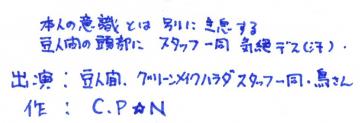 本人の意識とは別に生息する
豆人間の頭部に スタッフ一同 気絶デス(汗).
出演: 豆人間、グリーンメイクハラダスタッフ一同・鳥さん
作 : C.P☆N